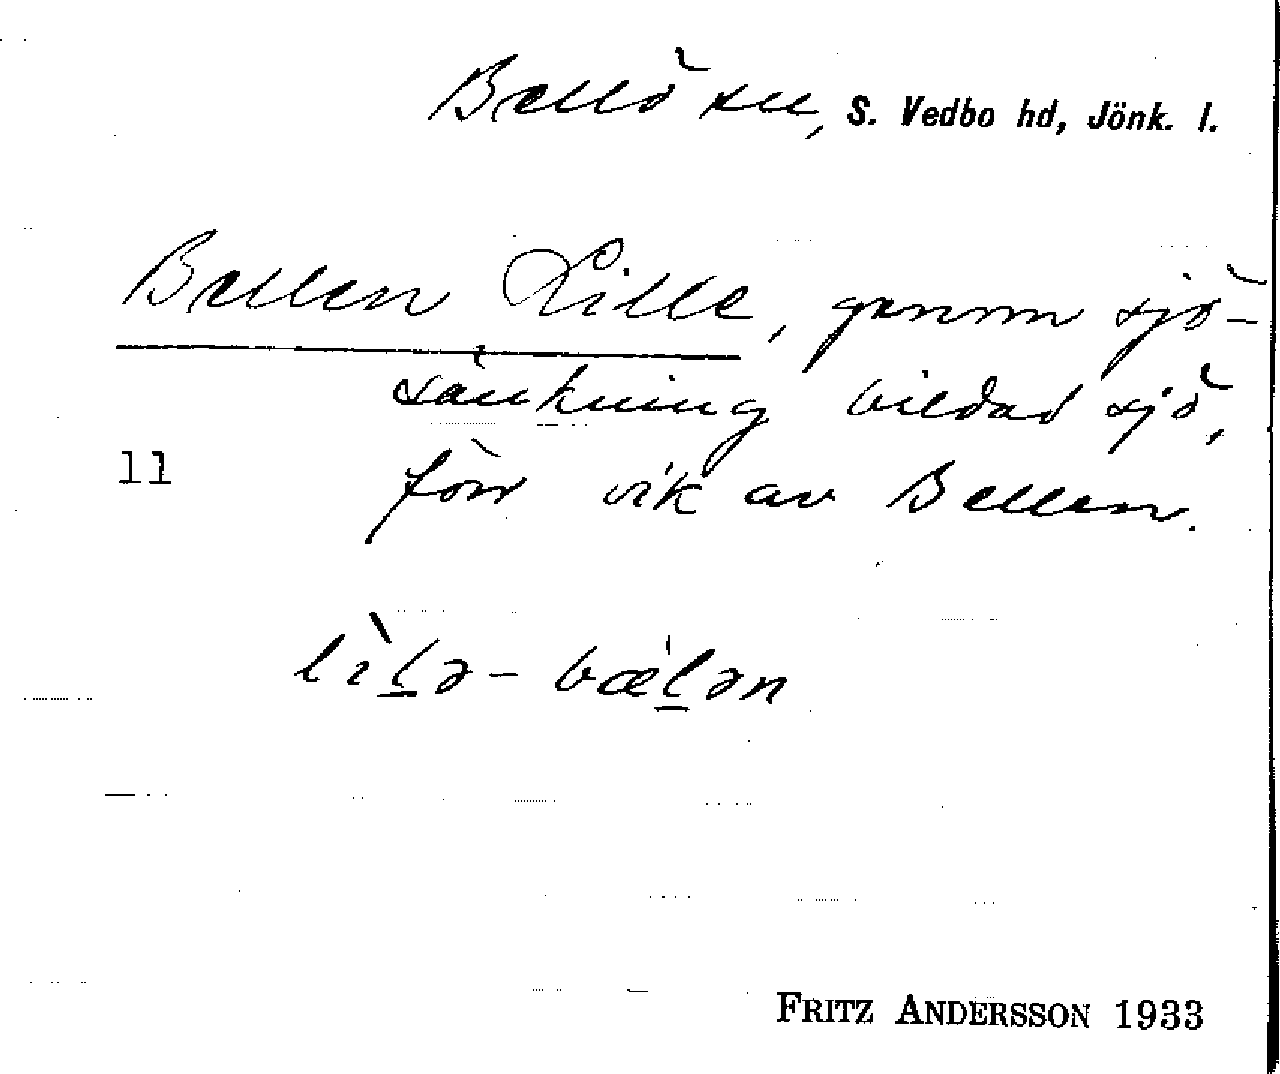 Bellö sn, S. Vedbo hd, Jönk. l.
Bellen Lille, genom sjö-
sänkning bildad sjö,
11 förr vik av Bellen.
lìl̲ə-bǽl̲ən
FRITZ ANDERSSON 1933